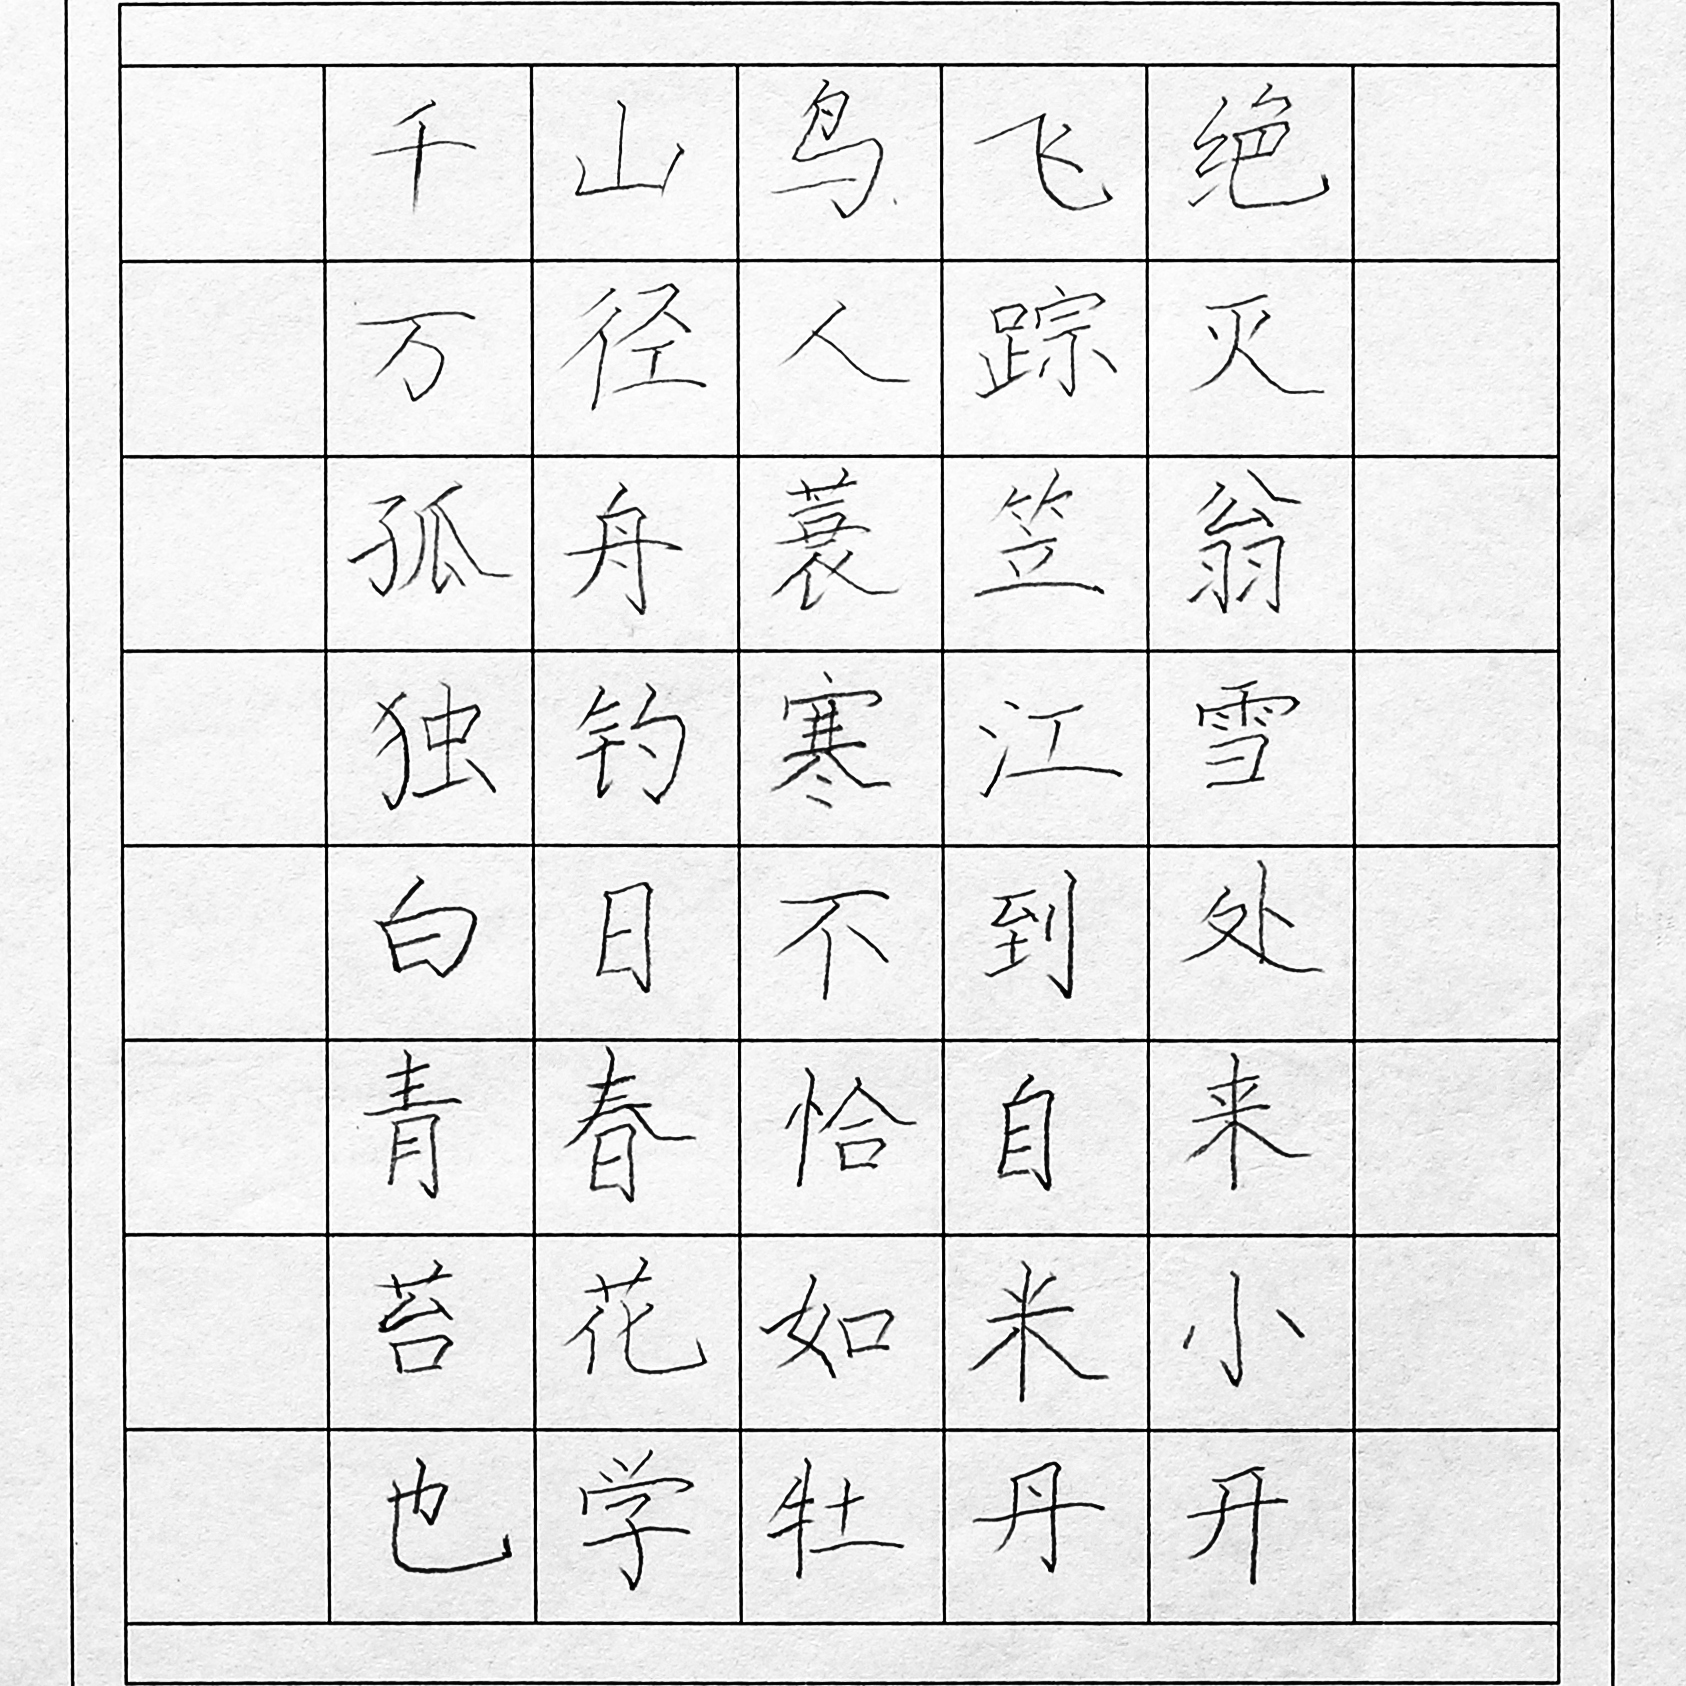 千山鸟飞绝
万径人踪灭
孤舟蓑笠翁
独钓寒江雪
白日不到处
青春恰自来
苔花如米小
也学牡丹开